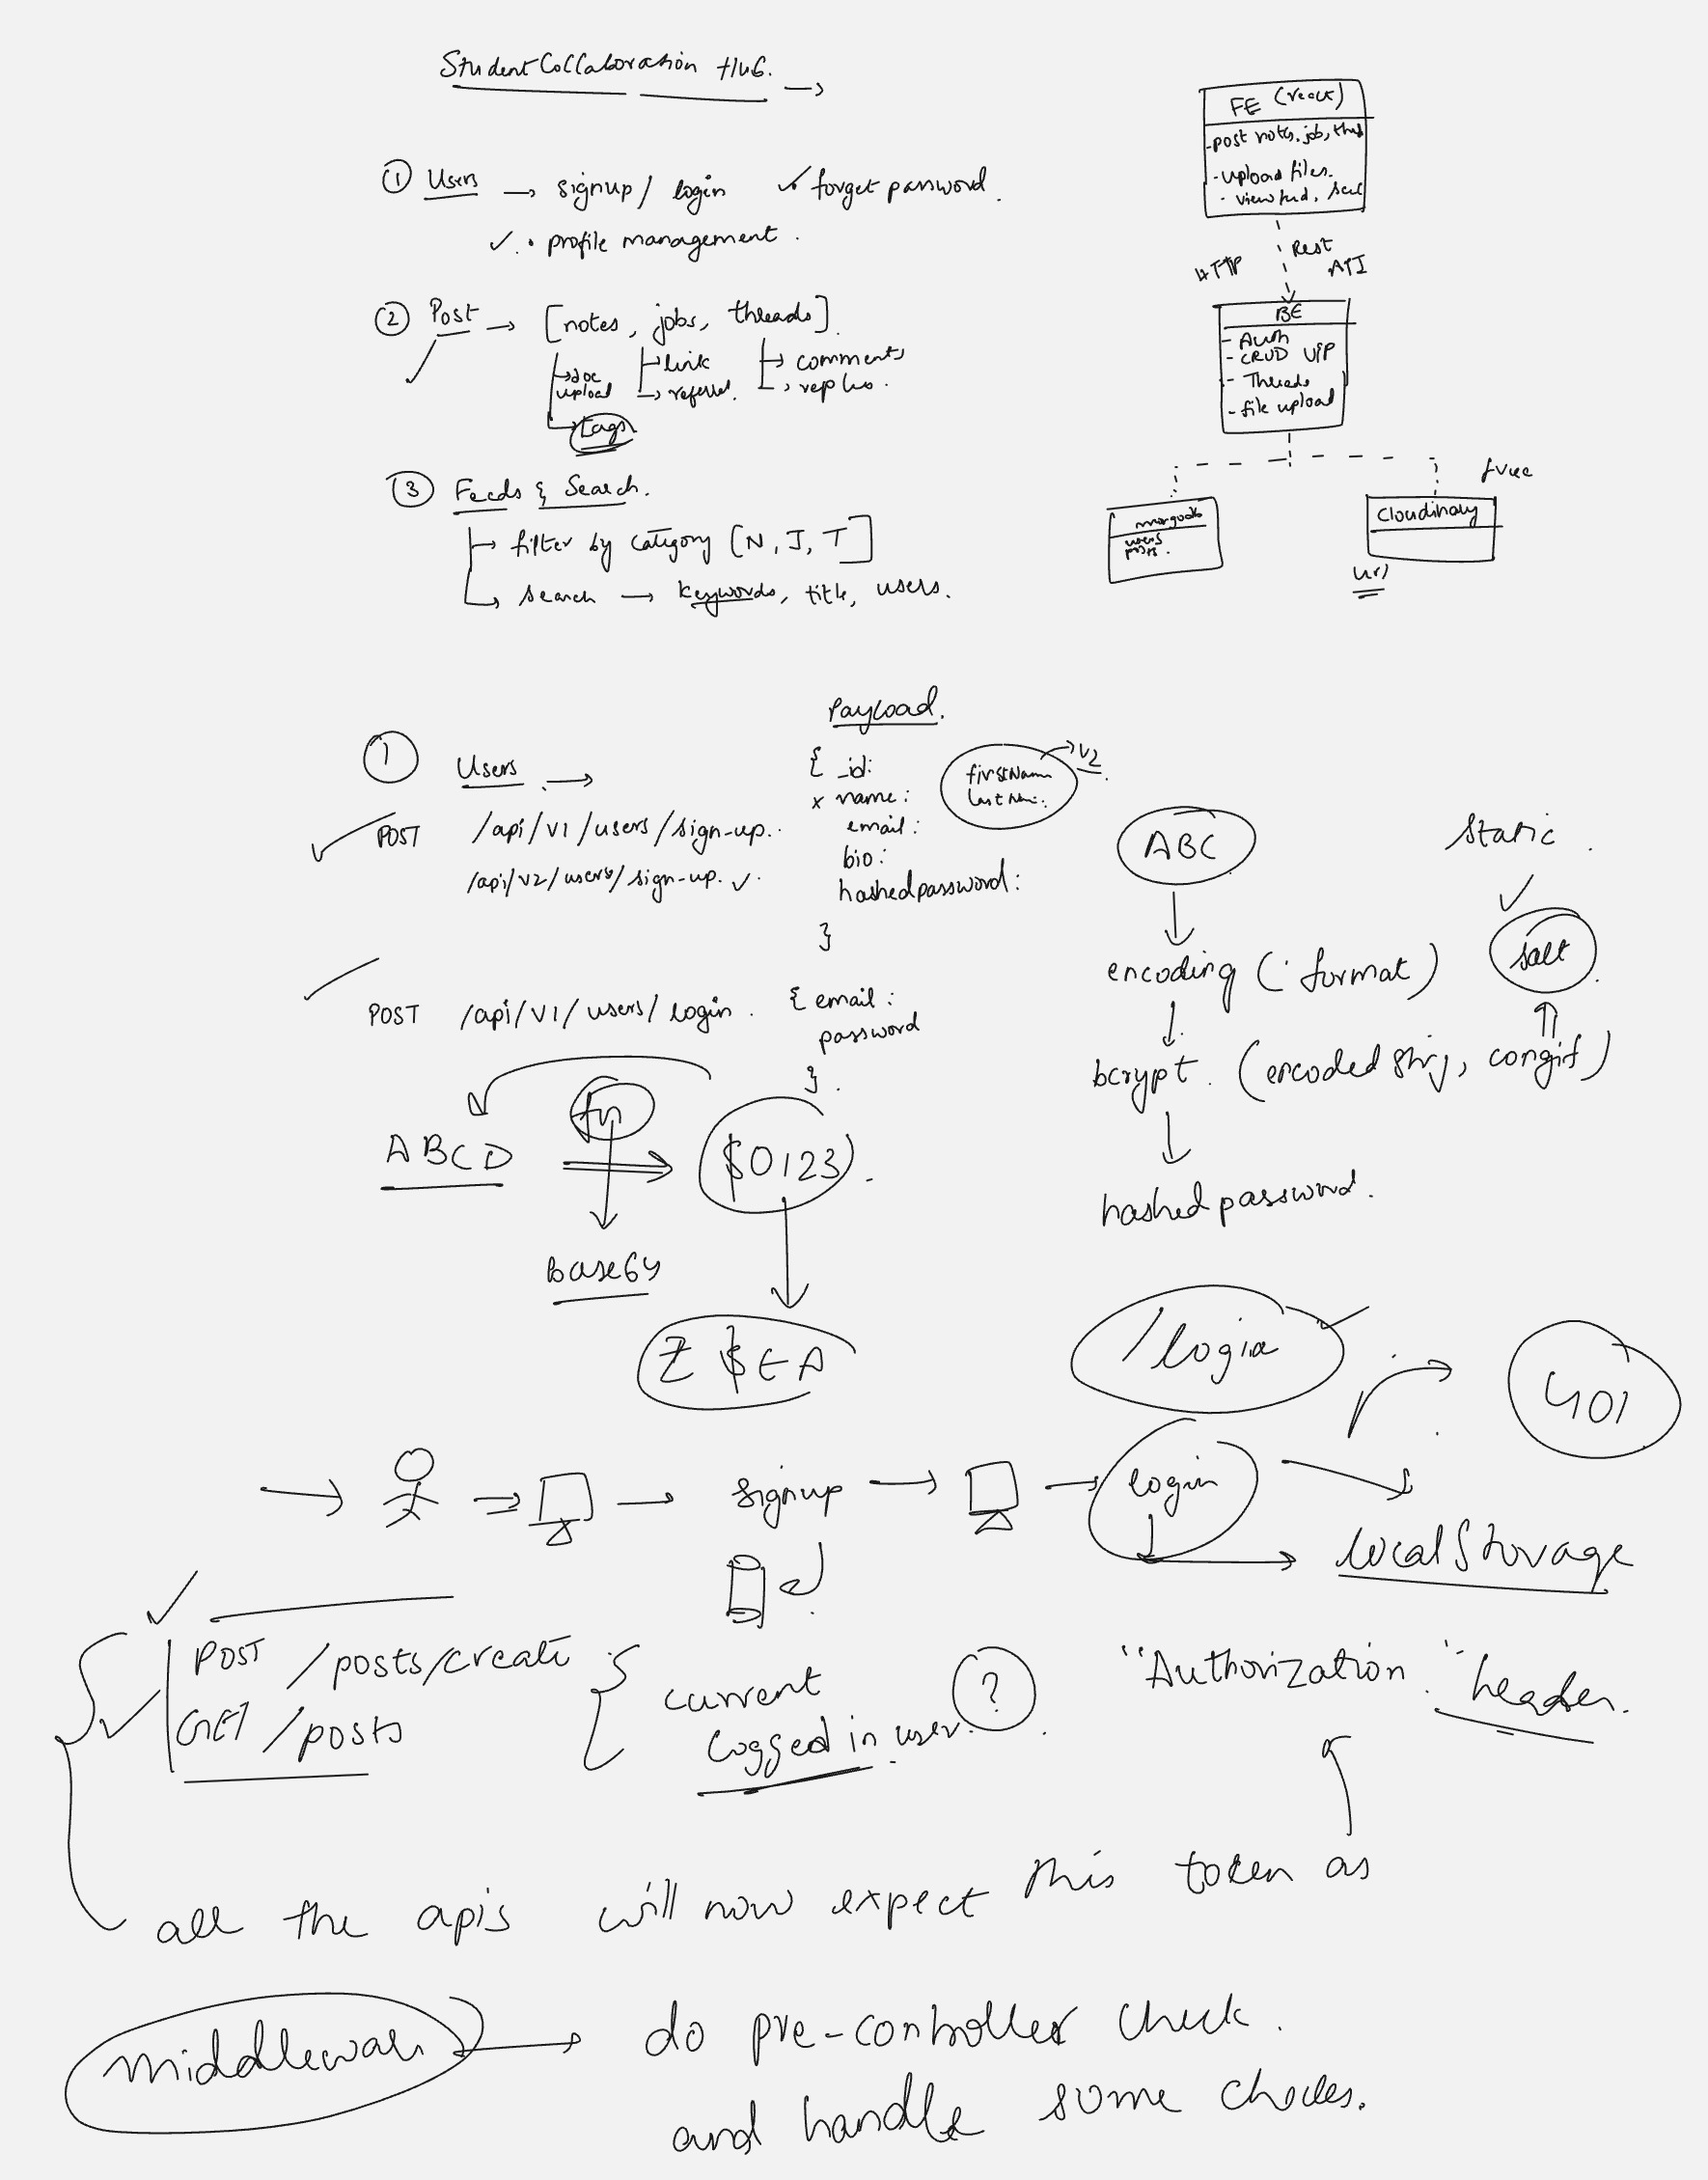 StudentCollaboration Hub.
① Users → signup / login ✓ forget password.
✓ . profile management.
② Post → [notes, jobs, threads].
doc upload
link
referral.
comments
replies.
tags
③ Feeds & Search.
filter by category [N, J, T]
search → keywords, title, users.
FE (react)
- post notes, job, thrd
- upload files.
- view feed,
HTTP
Rest
API
BE
- Auth
- CRUD U/P
- Threads
- file upload
mongodb
users
posts.
free
Cloudinary
url
Payload.
① Users →
POST /api/v1/users/sign-up.
/api/v2/users/sign-up. ✓.
{ _id:
x name:
email:
bio:
hashedpassword:
}
firstName
lastName.
→ v2
POST /api/v1/users/login.
{ email:
password
}.
ABCD
fn
$0123
base64
Z $EA
ABC
encoding (format)
bcrypt. (encoded string, congif)
hashed password.
static.
salt
/login
401
signup → login
localStorage
POST /posts/create
GET /posts
current
logged in user.
?
"Authorization" header.
all the apis will now expect this token as
Middleware → do pre-controller check.
and handle some checks.